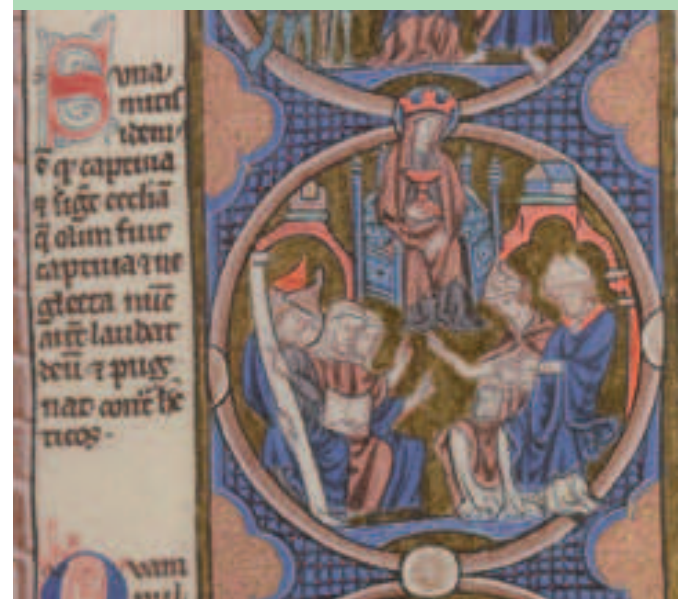 Suna/
mitis
idem/
ē qͥ captiua
⁊ sigͭ eccliā
q̄ olim fuit
captiua ⁊ ne
glecta nūc
aūt laudat
deū ⁊ pug
nat cont̄ he
ticos·
Quam
pul